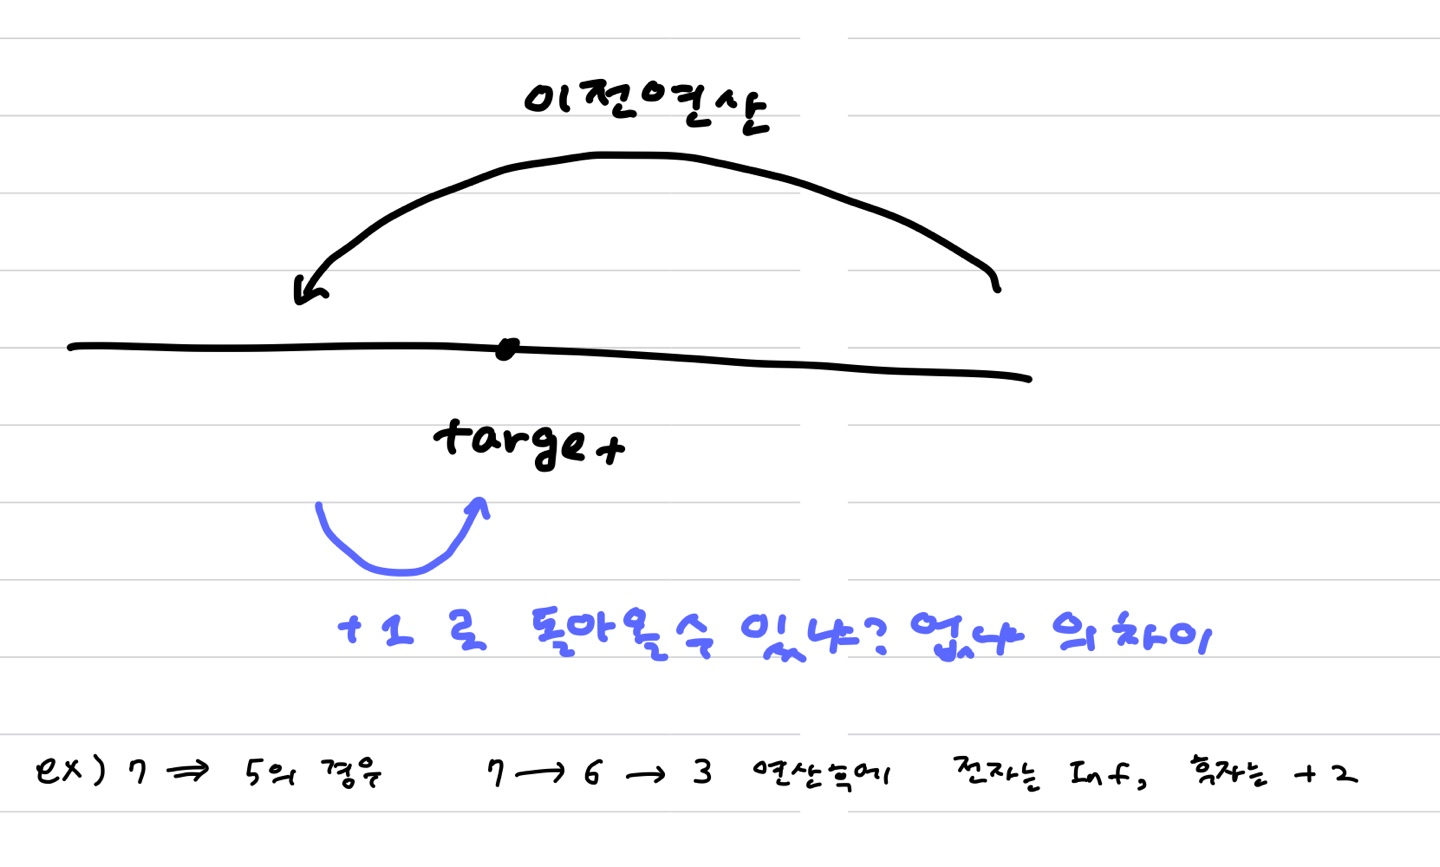 이전연산
target
+1 로 돌아올 수 있냐? 없냐 의 차이
ex) 7 ⇒ 5의 경우 7 → 6 → 3 연산후에 전자는 Inf, 후자는 +2